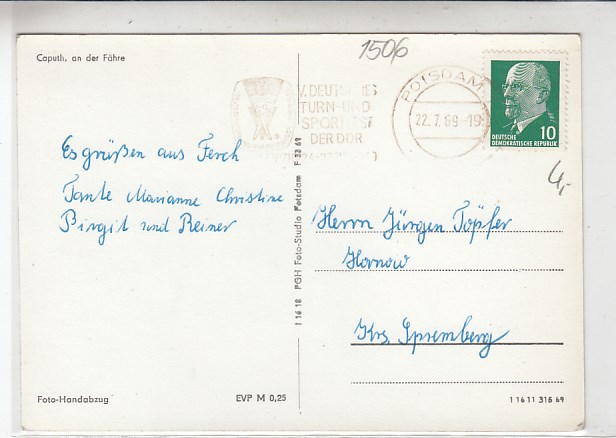 Caputh, an der Fähre
1506
V. DEUTSCHES
TURN- UND
SPORTFEST
DER DDR
POTSDAM
22.7.69-19
10
DEUTSCHE
DEMOKRATISCHE REPUBLIK
4,-
Es grüßen aus Ferch
Tante Marianne Christine
Birgit und Reiner
Herrn Jürgen Töpfer
Hornow
Krs. Spremberg
1 16 18 PGH Foto-Studio Potsdam F 33 69
Foto-Handabzug
EVP M 0,25
1 16 11 315 69